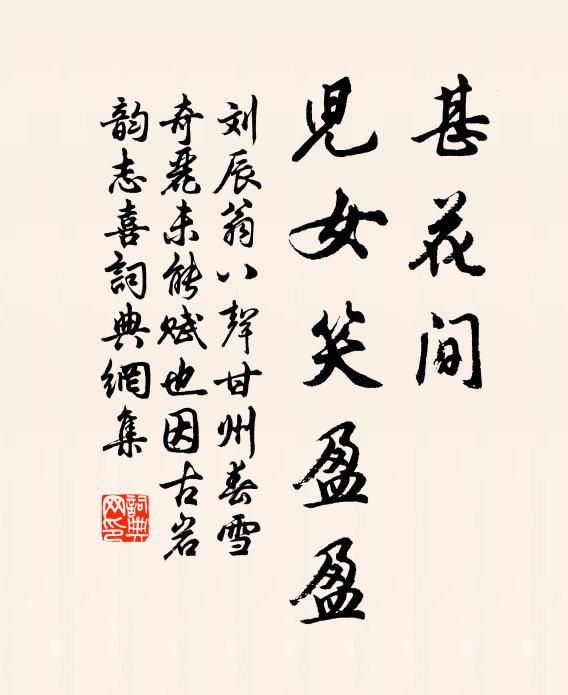 甚花间
児女笑盈盈
刘辰翁八聲甘州春雪
奇麗未能赋也因古岩
韵志喜詞典網集
詞典网印